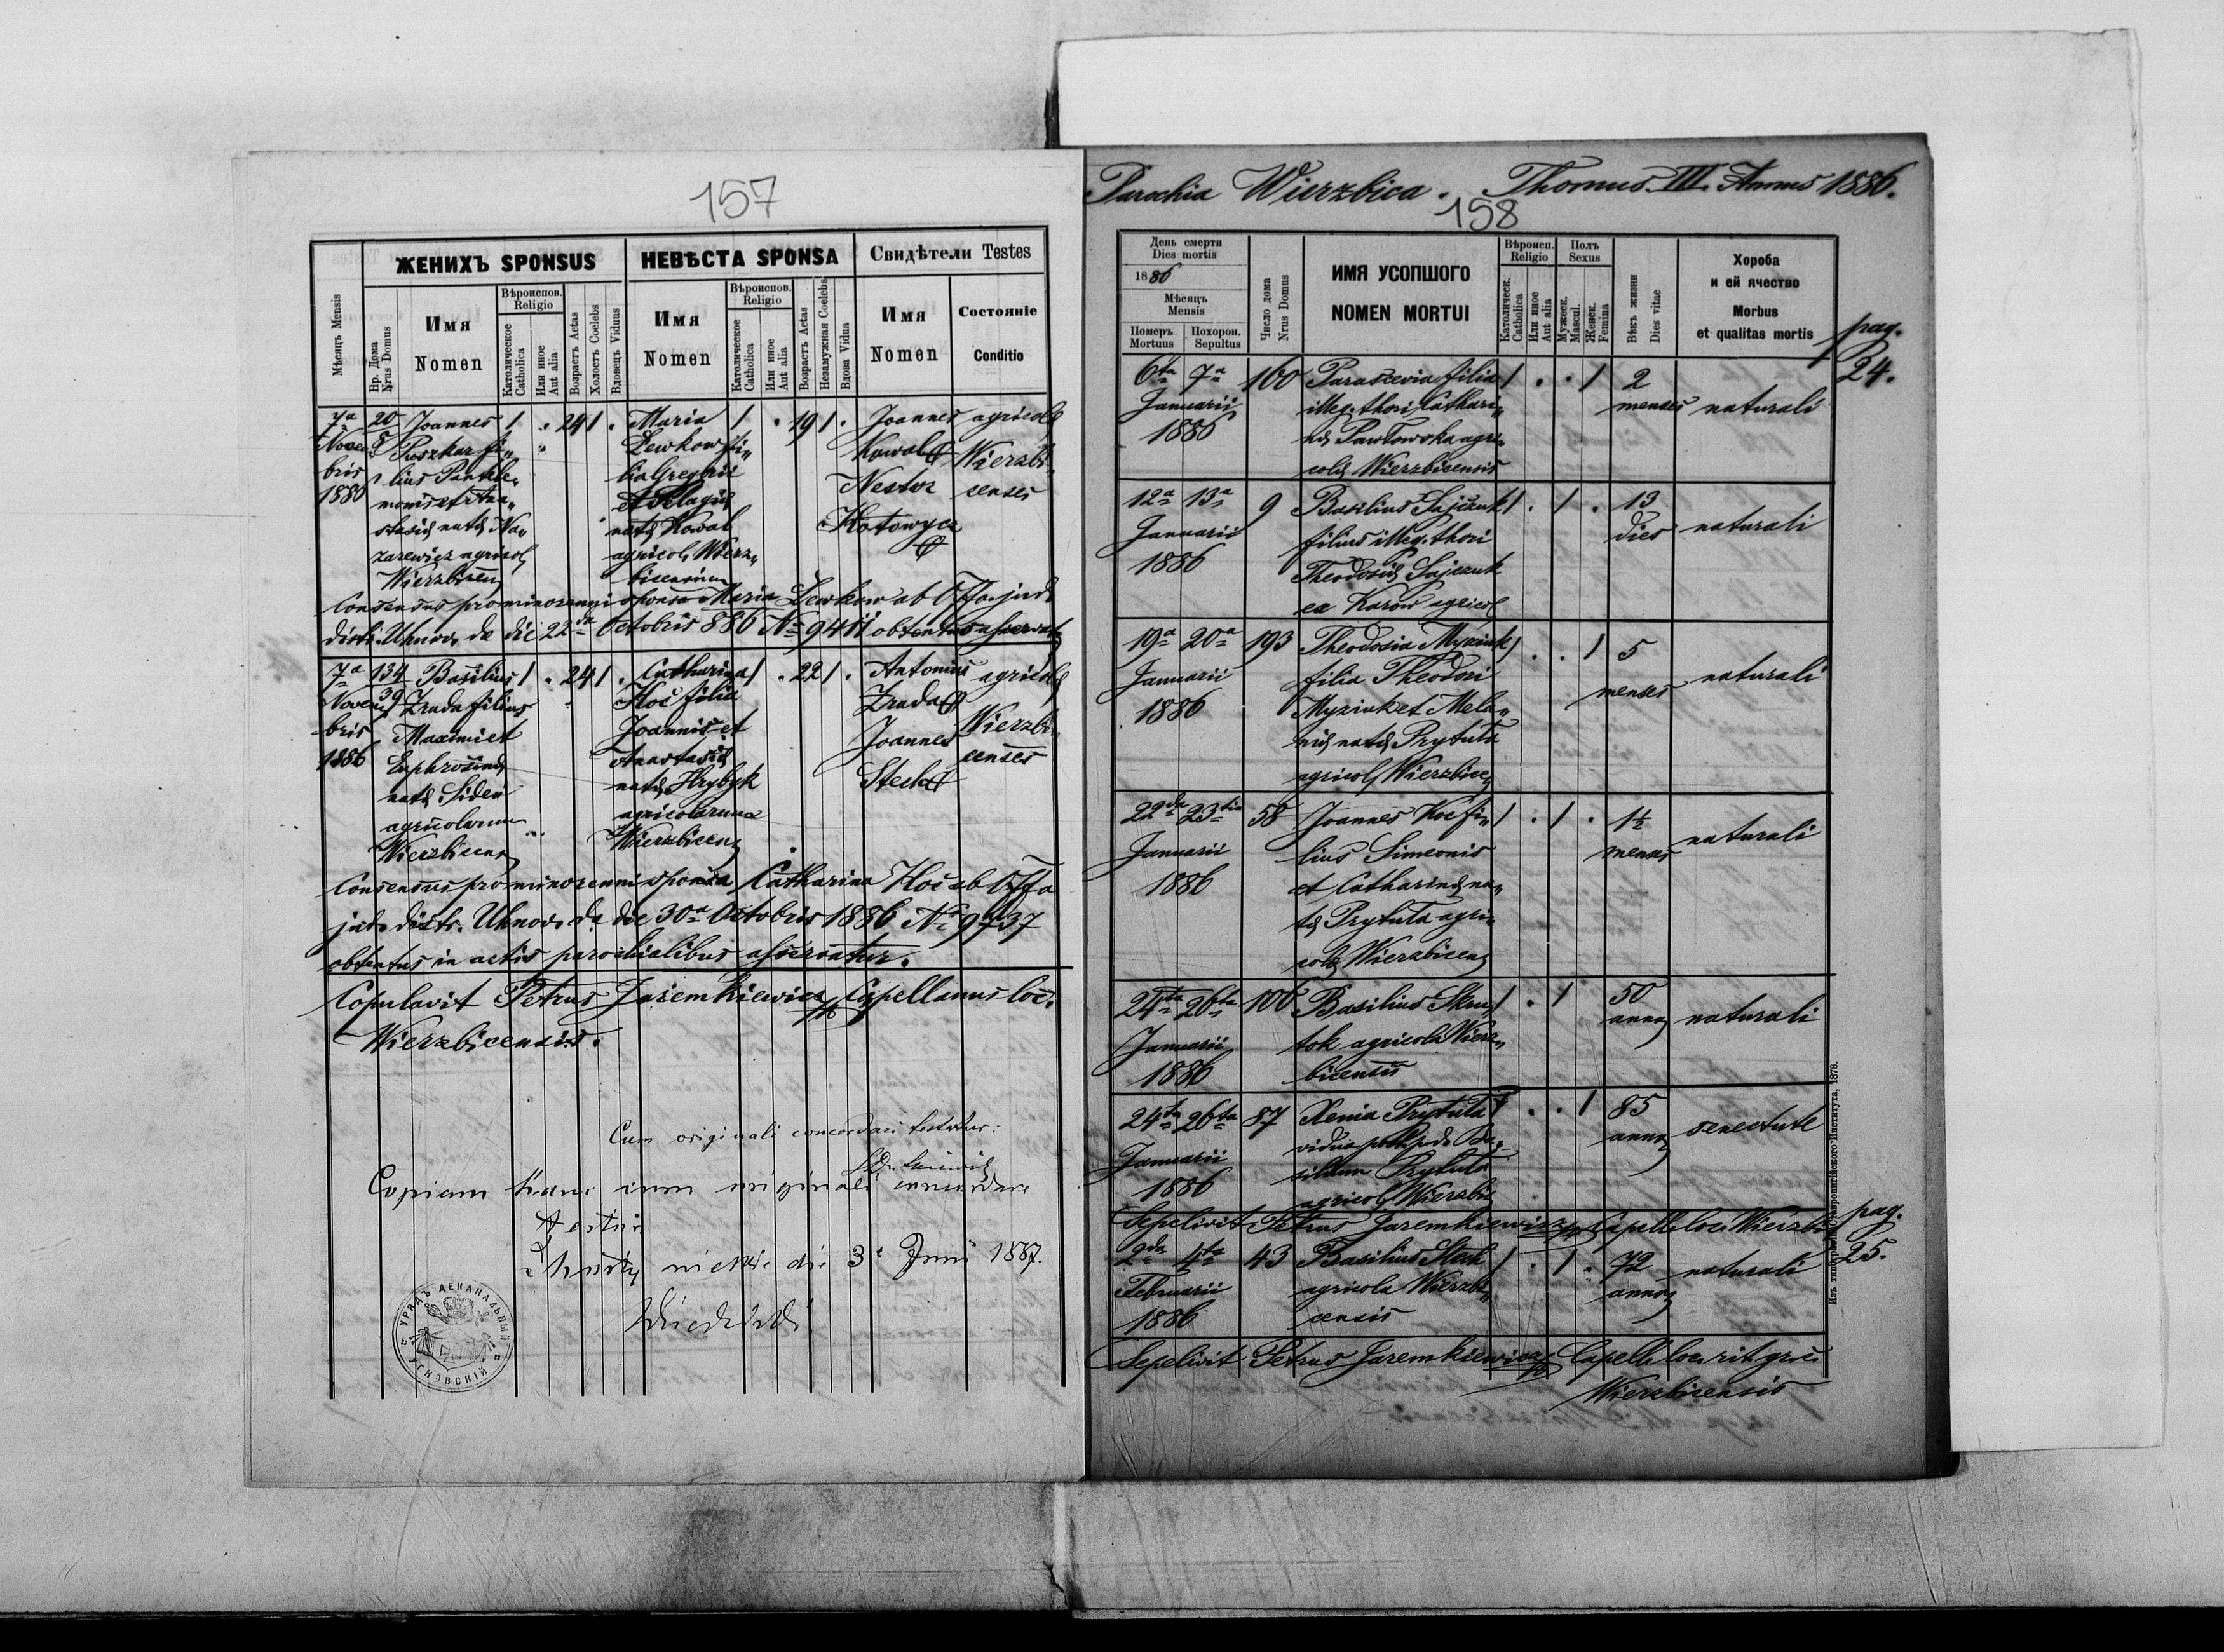 157
ЖЕНИХЪ SPONSUS
НЕВѢСТА SPONSA
Свидѣтели Testes
Мѣсяцъ Mensis
Нр. Дома
Nrus Domus
Имя
Nomen
Вѣроиспов.
Religio
Католическое
Catholica
Или иное
Aut alia
Возрастъ Aetas
Холостъ Coelebs
Вдовецъ Viduus
Имя
Nomen
Вѣроиспов.
Religio
Католическое
Catholica
Или иное
Aut alia
Возрастъ Aetas
Незамужная Coelebs
Вдова Vidua
Имя
Nomen
Состояніе
Conditio
7a
Novem
bris
1886
20
Joannes
Puszkar fi„
lius Pantele„
monis et Ana„
stasiæ natæ Na„
zarewicz agricol
Wierzbicen
1 . 24 1 .
Maria
Lewkow fi„
lia Gregorii
et Pelagiæ
natæ Kowal
agricol Wierz„
bicensium
1 . 19 1 .
Joannes
Kowal
Nestor
Kotowycz
agricolæ
Wierzbi„
censes
Consensus pro minorenni sponsa Maria Lewkow ab Offo jud.
distr. Uhnov. de die 22da Octobris 886 No 9411 obtentus asservat
7a
Novem
bris
1886
134
39
Basilius
Zrada filius
Maximi et
Euphrosinæ
natæ Sideń
agricolarum
Wierzbicen
1 . 24 1 .
Catharina
Hoć filia
Joannis et
Anastasiæ
natæ Hrybyk
agricolarum
Wierzbicen
1 . 22 1 .
Antonius
Zrada
Joannes
Stecka
agricolæ
Wierzbi„
censes
Consensus pro minorenni sponsa Catharina Hoć ab Offo
jud. distr. Uhnov. de die 30a Octobris 1886 No 9737
obtentus in actis parochialibus asservatur.
Copulavit Petrus Jaremkiewicz Capellanus loc.
Wierzbicensis.
Cum originali concordari testatur:
Copiam hanc cum originali concordare
testur
die 3 Juni 1887.
УРЯДЪ ДЕКАНАЛЬНЫЙ
УГНОВСКІЙ
Parochia Wierzbica. Thomus III. Annus 1886.
158
День смерти
Dies mortis
1886
Мѣсяцъ
Mensis
Померъ
Mortuus
Похорон.
Sepultus
Число дома
Nrus Domus
ИМЯ УСОПШОГО
NOMEN MORTUI
Вѣроисп.
Religio
Католическ.
Catholica
Или иное
Aut alia
Полъ
Sexus
Мужеск.
Mascul.
Женск.
Femina
Вѣкъ жизни
Dies vitae
Хороба
и ей ячество
Morbus
et qualitas mortis
pag.
24.
6ta 7a
Januarii
1886
160
Parascevia filia
illeg. thori Cathari„
næ Pawłowska agri„
colæ Wierzbicensis
1 . . 1
2
menses
naturali
12a 13a
Januarii
1886
9
Basilius Sajczuk
filius illeg. thori
Theodosiæ Sajczuk
ex Karów agricol
1 . 1 .
13
dies
naturali
19a 20a
Januarii
1886
193
Theodosia Myziuk
filia Theodori
Myziuk et Mela„
niæ natæ Prytuła
agricol Wierzbicen
1 . . 1
5
menses
naturali
22da 23tia
Januarii
1886
58
Joannes Koć fi„
lius Simeonis
et Catharinæ na„
tæ Prytuła agri„
colæ Wierzbicen
1 . 1 .
1½
menses
naturali
24ta 26ta
Januarii
1886
106
Basilius Skru„
tok agricola Wierz„
bicensis
1 . 1
50
annor
naturali
24ta 26ta
Januarii
1886
87
Xenia Prytuła
vidua post p. d. Ba„
silium Prytuła
agricol Wierzbic
1 . . 1
85
annor
senectute
Sepelivit Petrus Jaremkiewicz Capell. loc. Wierzbic
pag.
25.
2da 4ta
Februarii
1886
43
Basilius Stech
agricola Wierzbi„
censis
1 . 1 .
72
annor
naturali
Sepelivit Petrus Jaremkiewicz Capell. loc. rit. græc
Wierzbicensis
Изъ типографіи Ставропигійского Института, 1878.